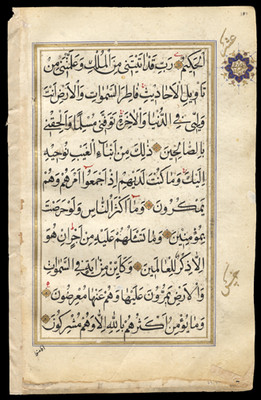 ٱلْحَكِيمُ رَبِّ قَدْ اٰتَيْتَنِى مِنَ ٱلْمُلْكِ وَعَلَّمْتَنِى مِنْ
تَأْوِيلِ ٱلْأَحَادِيثِ فَاطِرَ ٱلسَّمٰوَاتِ وَٱلْأَرْضِ أَنْتَ
وَلِيِّى فِى ٱلدُّنْيَا وَٱلْآخِرَةِ تَوَفَّنِى مُسْلِمًا وَأَلْحِقْنِى
بِٱلصَّالِحِينَ ذٰلِكَ مِنْ أَنْبَآءِ ٱلْغَيْبِ نُوحِيهِ
إِلَيْكَ وَمَا كُنْتَ لَدَيْهِمْ إِذْ أَجْمَعُوٓا أَمْرَهُمْ وَهُمْ
يَمْكُرُونَ وَمَآ أَكْثَرُ ٱلنَّاسِ وَلَوْ حَرَصْتَ
بِمُؤْمِنِينَ وَمَا تَسْئَلُهُمْ عَلَيْهِ مِنْ أَجْرٍ إِنْ هُوَ
إِلَّا ذِكْرٌ لِلْعَالَمِينَ وَكَأَيِّنْ مِنْ اٰيَةٍ فِى ٱلسَّمٰوَاتِ
وَٱلْأَرْضِ يَمُرُّونَ عَلَيْهَا وَهُمْ عَنْهَا مُعْرِضُونَ
وَمَا يُؤْمِنُ أَكْثَرُهُمْ بِٱللّٰهِ إِلَّا وَهُمْ مُشْرِكُونَ